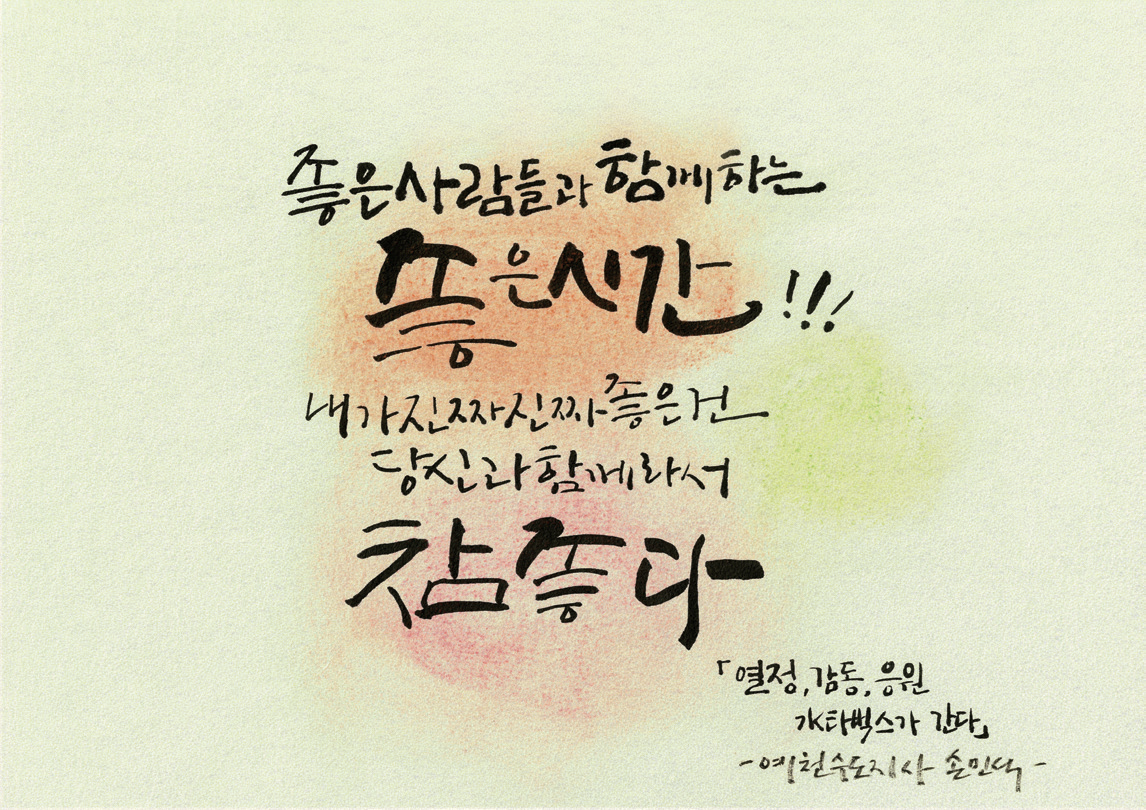 좋은사람들과 함께하는
좋은시간!!!
내가진짜진짜좋은건
당신과함께라서
참좋다
「열정,감동,응원
가 간다」
-예천수도지사 손민석-